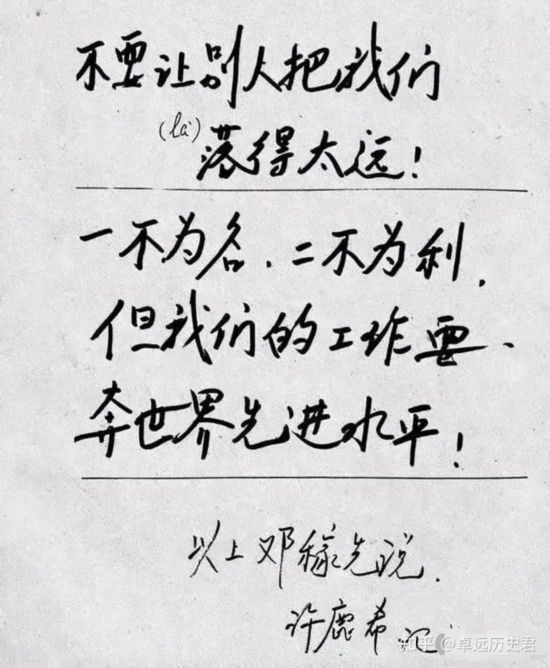 不要让别人把我们
(là)
落得太远！
一不为名、二不为利，
但我们的工作要、
奔世界先进水平！
以上邓稼先说.
许鹿希 记
知乎 @卓远历史君